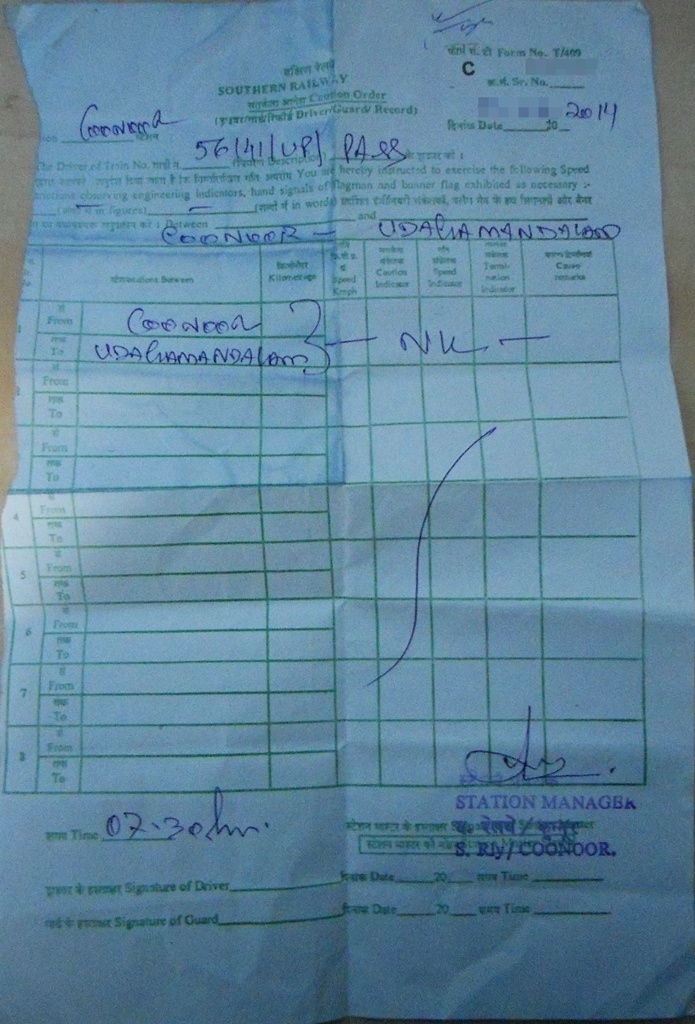 दक्षिण रेलवे
SOUTHERN RAILWAY
सतर्कता आदेश Caution Order
(ड्राइवर/गार्ड/रिकॉर्ड Driver/Guard/Record)
Form No. T/409
C
क्र.सं. Sr. No.
Coonoor
दिनांक Date 20 2014
The Driver of Train No. 56141/UP/ PASS
You are hereby instructed to exercise the following Speed
observing engineering indicators, hand signals of flagman and banner flag exhibited as necessary :-
in figures) in words)
Between COONOOR — and UDAGAMANDALAM
Between
किलोमीटर Kilometrage
गति Speed Kmph
सतर्कता संकेतक Caution Indicator
गति संकेतक Speed Indicator
Termination Indicator
Cause remarks
1 से From COONOOR
तक To UDAGAMANDALAM — NIL —
2 से From
तक To
से From
तक To
4 From
तक To
5 से From
तक To
6 से From
तक To
7 से From
तक To
8 से From
तक To
STATION MANAGER
द. रेलवे / कुन्नूर
S. Rly/ COONOOR.
समय Time 07.30 hr.
ड्राइवर के हस्ताक्षर Signature of Driver दिनांक Date 20 समय Time
गार्ड के हस्ताक्षर Signature of Guard दिनांक Date 20 समय Time